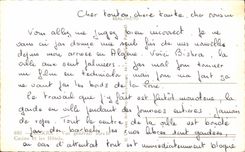 Cher tonton, chère tante, cher cousin
Vous allez me juger bien incorrect. Je ne
vous ai pas donné une seule fois de mes nouvelles
depuis mon arrivée en Algérie. Voici Biskra, la
ville aux sept palmiers. J'ai mal fou tourner
un film en technicolor mais pour moi ça
ne vaut pas les bords de la
Le travail que j'y fait est plutôt monotone, la
garde en ville pendant des journées entières jamais
de repos. Tout le centre de la ville est bordé
par des barbelés les rues libres sont gardées
au cas d'attentat tout est immédiatement bloqué